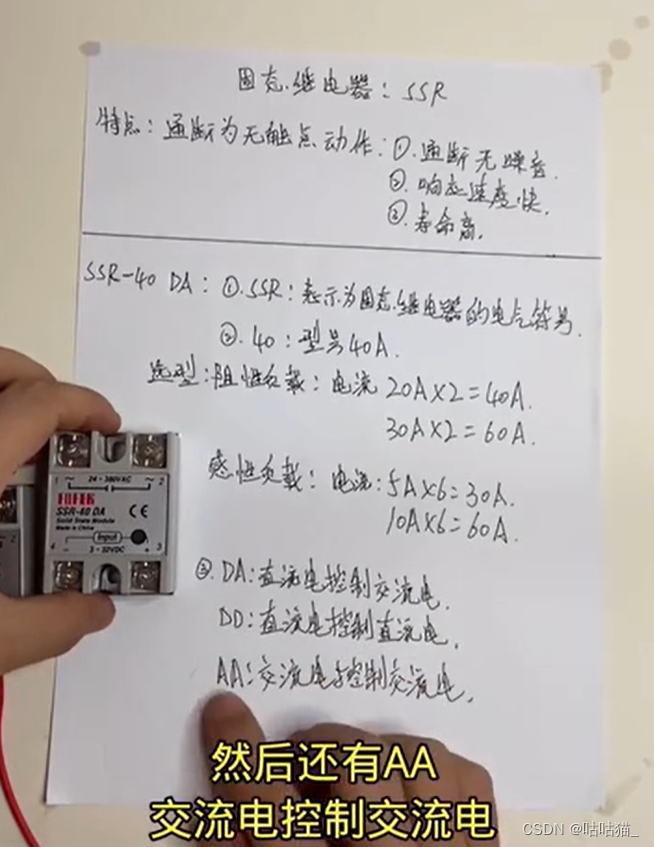 固态继电器：SSR
特点：通断为无触点动作：①.通断无噪音.
②.响应速度快.
③.寿命高.
SSR-40 DA：①.SSR：表示为固态继电器的电气符号.
②.40：型号40A.
选型：阻性负载：电流 20A×2=40A.
30A×2=60A.
感性负载：电流：5A×6=30A.
10A×6=60A.
1 ~ 24-380VAC ~ 2
FOTEK
SSR-40 DA
Solid State Module
Made in China
CE
Input
4 - 3-32VDC + 3
③.DA：直流电控制交流电.
DD：直流电控制直流电.
AA：交流电控制交流电.
然后还有AA
交流电控制交流电
CSDN @咕咕猫_